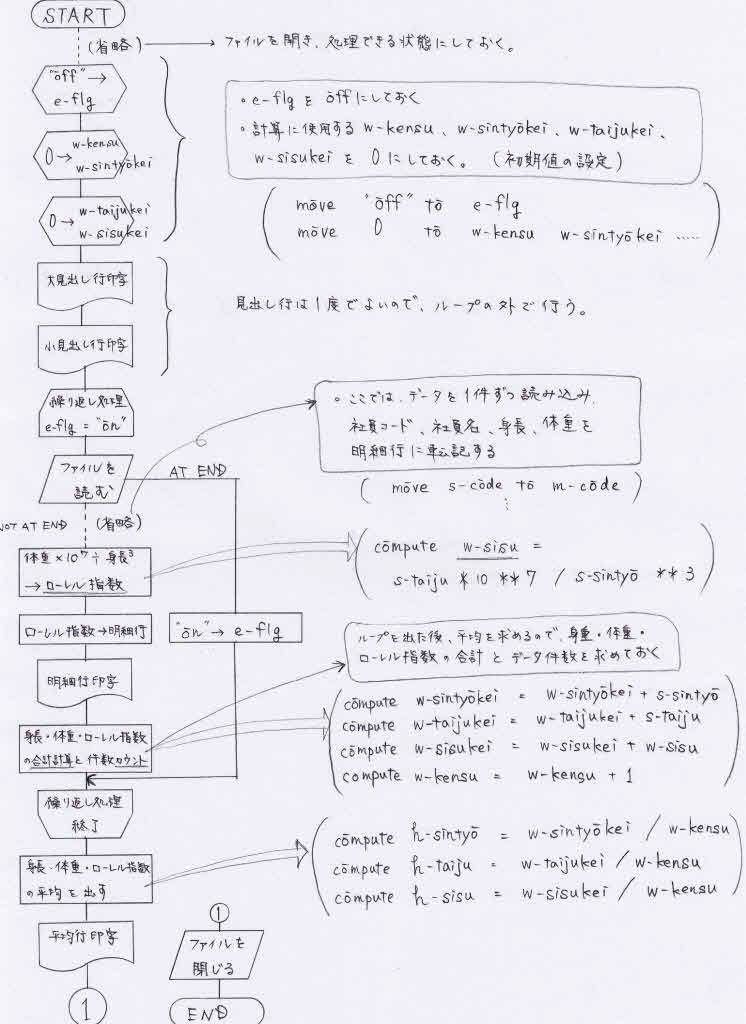 START
(省略) → ファイルを開き、処理できる状態にしておく。
"ōff" →
e-flg
0 → w-kensu
w-sintyōkei
0 → w-taijukei
w-sisukei
。e-flg を ōffにしておく
・計算に使用する w-kensu、w-sintyōkei、w-taijukei、
w-sisukei を 0にしておく。 (初期値の設定)
mōve "ōff" tō e-flg
mōve 0 tō w-kensu w-sintyōkei .....
大見出し行印字
小見出し行印字
見出し行は1度でよいので、ループの外で行う。
繰り返し処理
e-flg = "ōn"
。ここでは、データを1件ずつ読み込み、
社員コード、社員名、身長、体重を
明細行に転記する
( mōve s-cōde tō m-cōde )
⋮
ファイルを
読む
AT END
NOT AT END
(省略)
体重×10⁷÷身長³
→ローレル指数
cōmpute w-sisu =
s-taiju * 10 ** 7 / s-sintyō ** 3
ローレル指数→明細行
"ōn" → e-flg
明細行印字
ループを出た後、平均を求めるので、身重・体重・
ローレル指数の合計とデータ件数を求めておく
身長・体重・ローレル指数
の合計計算と件数カウント
cōmpute w-sintyōkei = w-sintyōkei + s-sintyō
cōmpute w-taijukei = w-taijukei + s-taiju
cōmpute w-sisukei = w-sisukei + w-sisu
cōmpute w-kensu = w-kensu + 1
繰り返し処理
終了
身長・体重・ローレル指数
の平均を出す
cōmpute h-sintyō = w-sintyōkei / w-kensu
cōmpute h-taiju = w-taijukei / w-kensu
cōmpute h-sisu = w-sisukei / w-kensu
平均行印字
1
1
ファイルを
閉じる
END